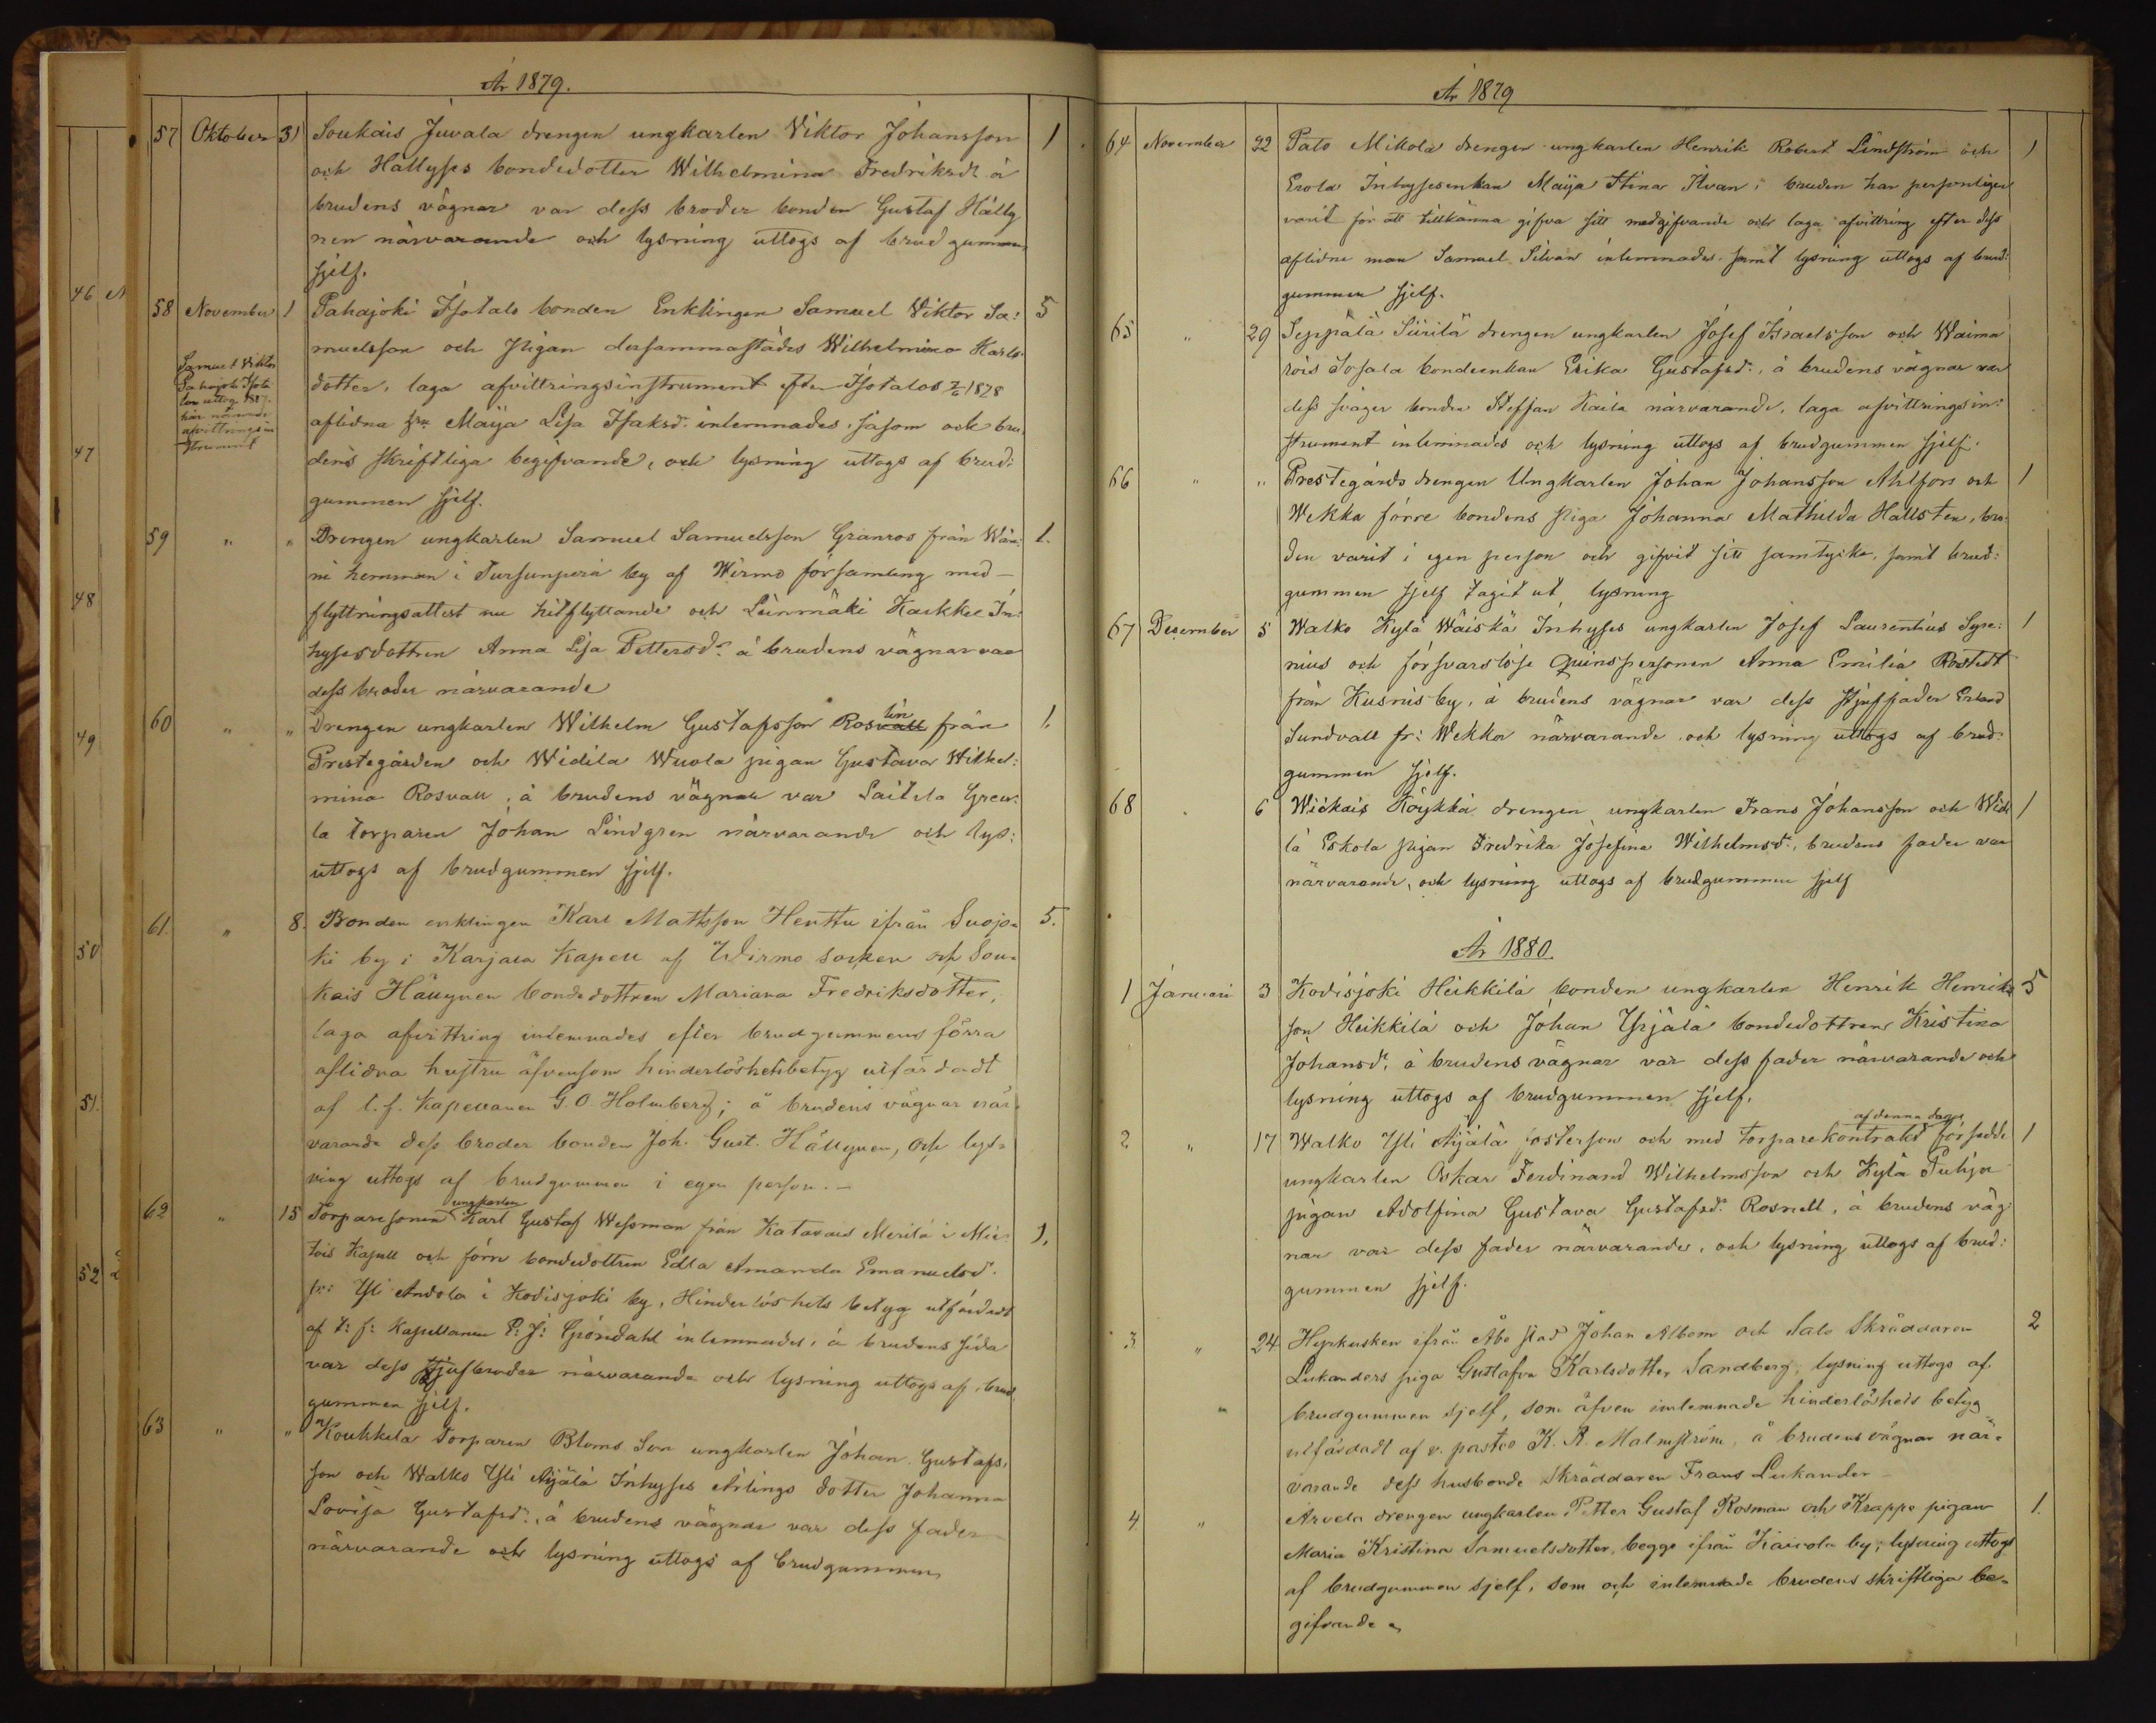 År 1879.
57 Oktober 31 Soukais Juvala drengen ungkarlen Viktor Johansson 1
och Hällyses bondedotter Wilhelmina Fredriksdr å
brudens vägnar var dess broder bonden Gustaf Hälly
nen närvarande och lysning uttogs af brudgummen
sjelf.
58 November 1 Pahajoki Isotalo bonden Enklingen Samuel Viktor Sa: 5
muelsson och pigan dersammastädes Wilhelmina Karls
dotter, laga afvittringsinstrument efter Isotalos 1878
aflidna hru Maija Lisa Isaksdr inlemnades, såsom ock bru
dens skriftliga begifvande, och lysning uttogs af brud:
gummen sjelf.
Samuel Viktor
Pahajoki Isota
lon uttog 1887
här nämnde
afvittringsin
strument
59 " " Drengen ungkarlen Samuel Samuelsson Granros från 1.
ni hemman i Tursunperä by af Wirmo församling med
flyttningsattest nu hitflyttande och Leinmäki Kaukko In:
hysesdottren Anna Lisa Pettersdr å brudens vägnar var
dess broder närvarande
60 " " Drengen ungkarlen Wilhelm Gustafsson Rosvall lin från 1.
Prestegården och Widila Wuola pigan Gustava Wilhel:
mina Rosvall, å brudens vägnar var Laitila Greu:
la torparen Johan Lindgren närvarande och lys:
uttogs af brudgummen sjelf.
61. " 8. Bonden enklingen Karl Mattsson Henttu ifrån Suojo- 5.
ki by i Karjala Kapell af Wirmo socken och Sou-
kais Hällynen bondedottren Mariana Fredriksdotter,
laga afvittring inlemnades efter brudgummens förra
aflidna hustru äfvensom hinderlöshetsbetyg utfärdadt
af t.f. Kapellanen G. O. Holmberg; å brudens vägnar när-
varande dess broder bonden Joh. Gust. Hällynen, och lys-
ning uttogs af brudgummen i egen person.-
62 " 15 Torparesonen ungkarlen Karl Gustaf Wessman från Katavais Merilä i Mie: 1.
tois Kapell och förre bondedottren Edla Amanda Emanuelsdr
fr: Yli Andola i Kodisjoki by, Hinderlöshets betyg utfärdadt
af t: f: Kapellanen P: J: Gröndahl inlemnades, å brudens sida
var dess stjufbroder närvarande och lysning uttogs af brud
gummen sjelf.
63 " " Koukkela Torparen Bloms Son ungkarlen Johan Gustafs
son och Walko Yli Äijälä Inhyses Ärlings dotter Johanna
Lovisa Gustafsdr, å brudens vägnar var dess fader
närvarande och lysning uttogs af brudgummen
46
47
48
49
50
51.
52
År 1879
64 November 22 Pato Mikola drengen ungkarlen Henrik Robert Lindström och 1
Erola Inhysesenkan Maija Stina Silvan; bruden har personligen
varit för att tillkänna gifva sitt medgifvande och laga afvittring efter dess
aflidne man Samuel Silvan inlemnades samt lysning uttogs af brud:
gummen sjelf.
65 " 29 Seppälä Siirilä drengen ungkarlen Josef Israelsson och Waima
rois Sosala bondeenkan Erika Gustafsdr, å brudens vägnar var
dess svåger bonden Steffan Kaila närvarande, laga afvittringsin:
strument inlemnades och lysning uttogs af brudgummen sjelf.
66 " " Prestegårds drengen Ungkarlen Johan Johansson Ahlfors och 1
Wekka förre bondens piga Johanna Mathilda Hallsten, bru:
den varit i egen person och gifvit sitt samtycke, samt brud:
gummen sjelf tagit ut lysning
67 December 5 Walko Kylä Wäiskä Inhyses ungkarlen Josef Laurentius Syre: 1
nius och försvarslöse Quinspersonen Anna Emilia Rostedt
från Kusnis by, å brudens vägnar var dess stjuffader Erland
Sundvall fr: Wekka närvarande, och lysning uttogs af brud:
gummen sjelf.
68 6 Köykkä drengen ungkarlen Frans Johansson och Widi 1
lä Eskola pigan Fredrika Josefina Wilhelmsdr, brudens fader var
närvarande, och lysning uttogs af brudgummen sjelf
År 1880.
1 Januari 3 Kodisjoki Heikkilä bonden ungkarlen Henrik Henriks 5
son Heikkilä och Johan Yrjälä bondedottren Kristina
Johansdr, å brudens vägnar var dess fader närvarande och
lysning uttogs af brudgummen sjelf.
2 " 17 Walko Yli Äijälä fosterson och med torparekontrakt af denna dag försedde 1
ungkarlen Oskar Ferdinand Wilhelmsson och Kylä Puhja
pigan Adolfina Gustava Gustafsdr Rosnell, å brudens väg
nar var dess fader närvarande, och lysning uttogs af brud:
gummen sjelf.
3 " 24 Hyrkusken ifrån Åbo stad Johan Albom och Salo Skräddaren 2
Lukanders piga Gustafva Karlsdotter Sandberg; lysning uttogs af
brudgummen sjelf, som äfven inlemnade hinderlöshets betyg
utfärdadt af v. pastor K. R. Malmström, å brudens vägnar när-
varande dess husbonde Skräddaren Frans Lukander
4. " Arvela drengen ungkarlen Petter Gustaf Rosman och Krappe pigan 1.
Maria Kristina Samuelsdotter, begge ifrån Kaivola by; lysning uttogs
af brudgummen sjelf, som och inlemnade brudens skriftliga be-
gifvande